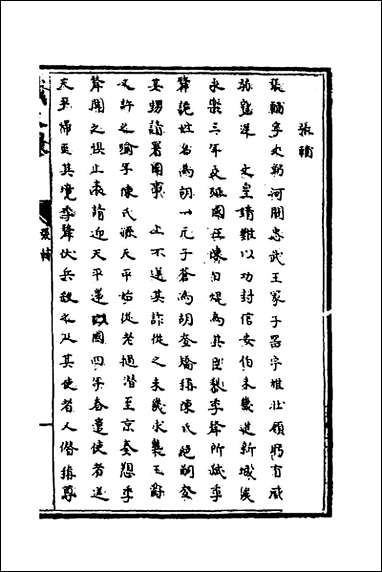 張輔
張輔字文弼河間忠武王冢子器宇雄壯顧眄有威
弼寬洋　文皇靖難以功封信安伯未幾進新城侯
永樂三年安南國王陳日煃為其臣黎季犛所弒季
犛詭姓名為胡一元子蒼為胡查矯稱陳氏絕嗣查
其甥請署國事　上不逆其詐從之未幾求襲王爵
又許之喻年陳氏孫天平始從老撾潛至京奏愬季
犛聞之懼上表請迎天平還國四年春遣使者送
天平歸至其境季犛伏兵殺之及其使者人僭擬尊
張輔